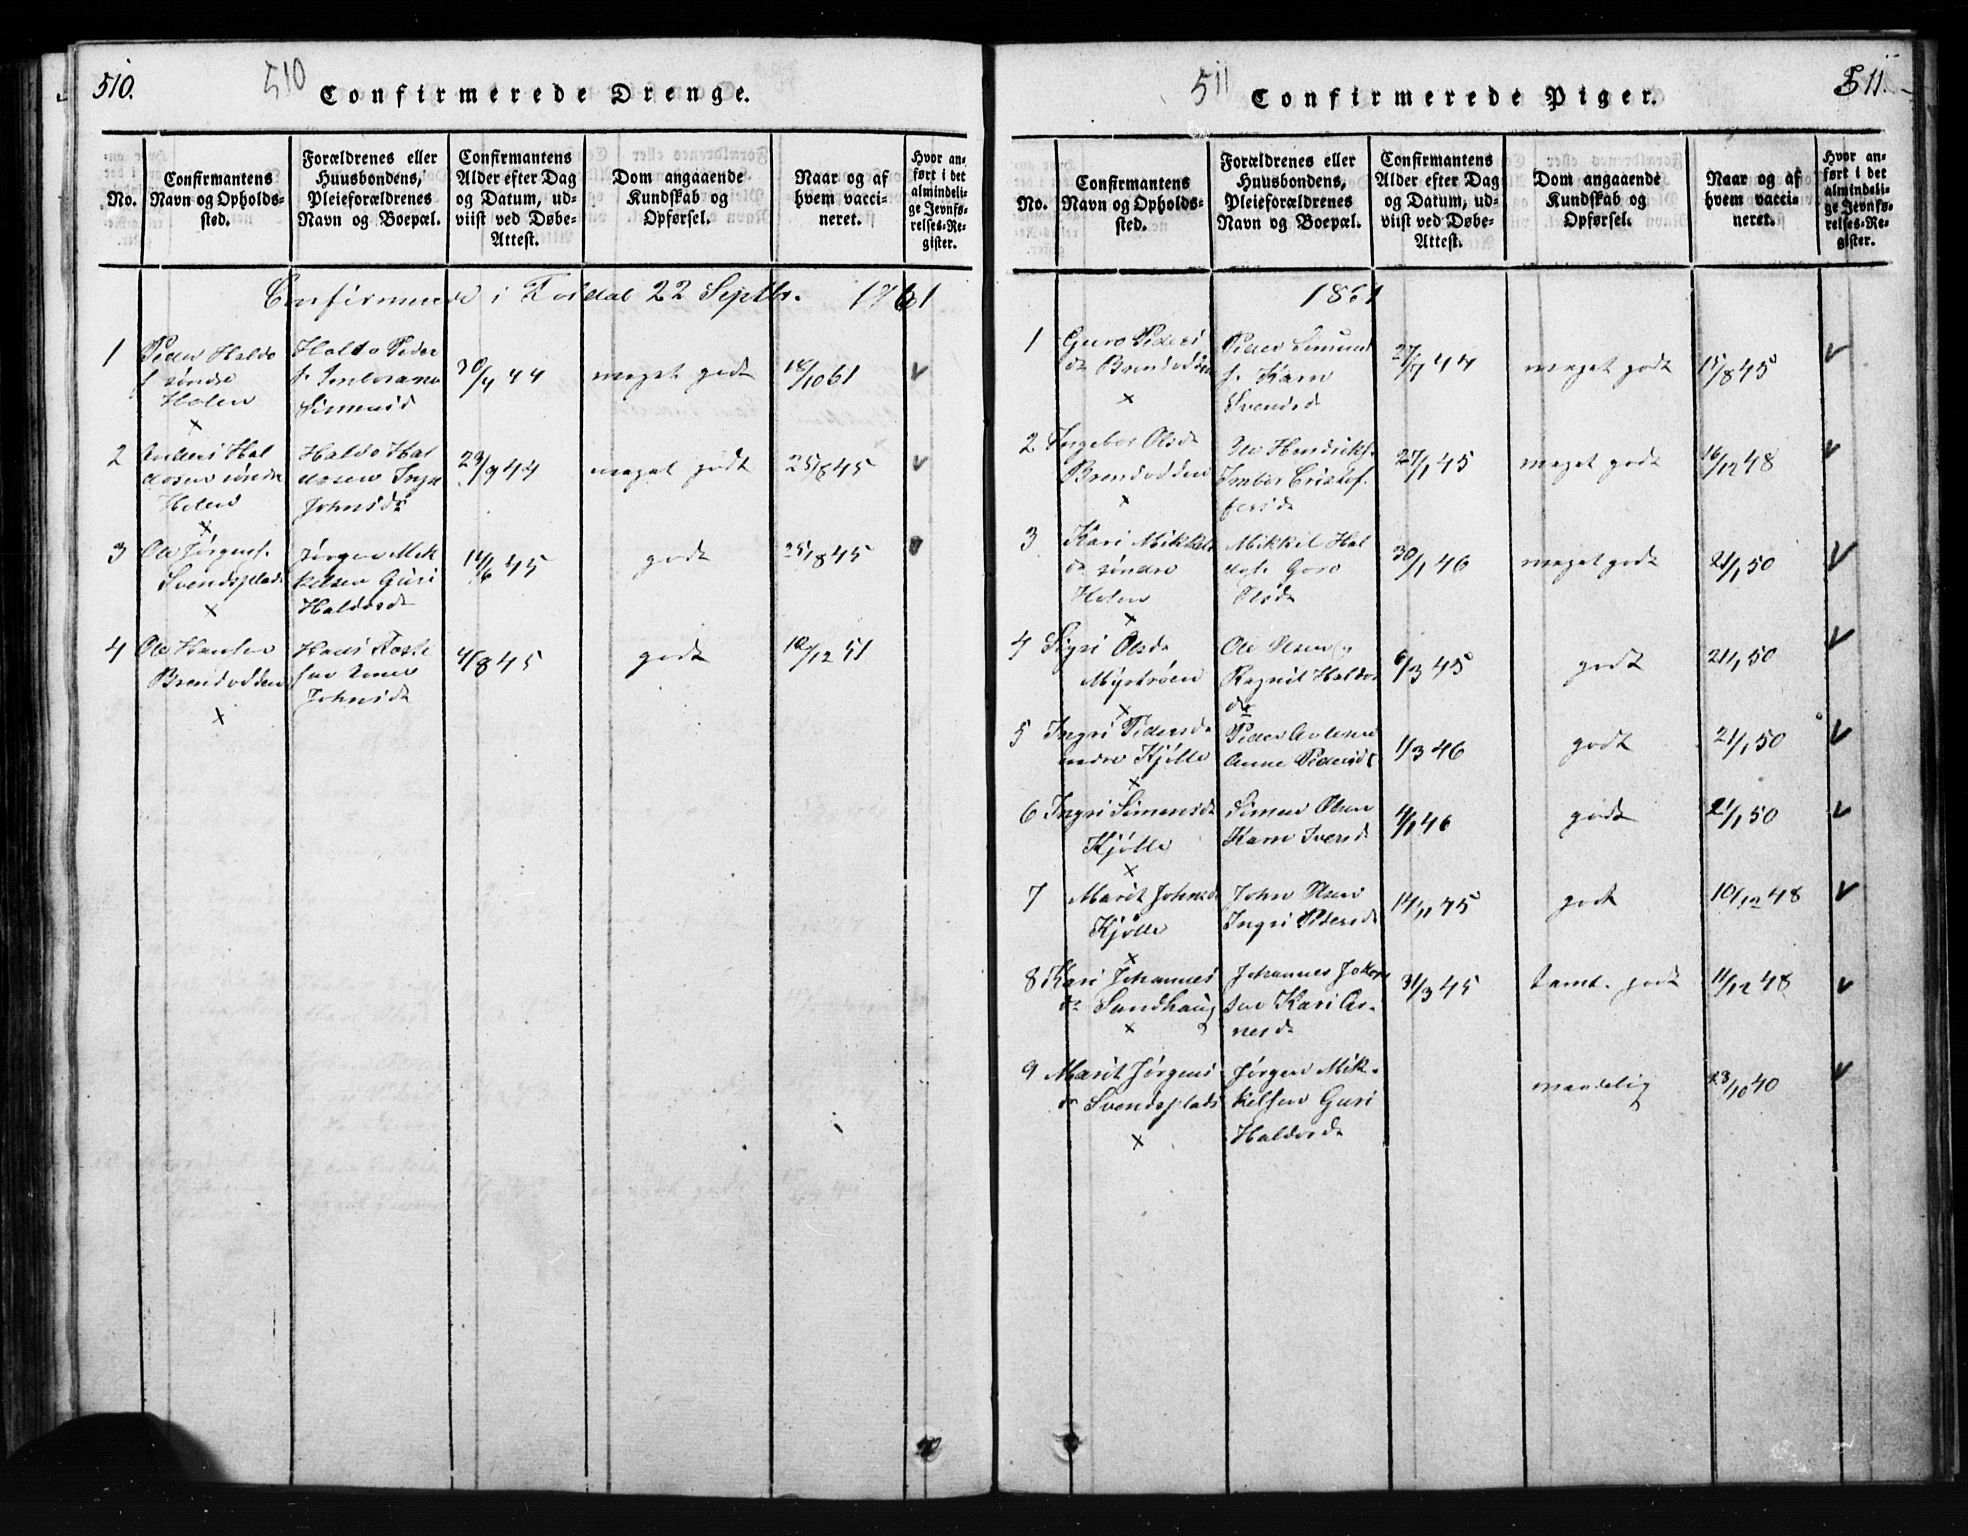 510.
510
Confirmerede Drenge.
No.
Confirmantens
Navn og Opholds-
sted.
Forældrenes eller
Huusbondens,
Pleieforældrenes
Navn og Boepæl.
Confirmantens
Alder efter Dag
og Datum, ud-
viist ved Døbe-
Attest.
Dom angaaende
Kundskab og
Opførsel.
Naar og af
hvem vacci-
neret.
Hvor an-
ført i det
almindeli-
ge Jevnfø-
relses-Re-
gister.
Confirmerede i 22 Septbr. 1861
1
Peder Haldo
søndre
Holen
Haldo Peder
Simensd
30/4 44
meget godt
18/10 61
2
Anders Hal
dosen søndre
Holen
Haldo Hal
dosen Inga
Johnsd
23/9 44
meget godt
25/8 45
3
Ole Jørgens.
Svendsplads
Jørgen Mik
kelsen Guri
Haldosd
14/6 45
godt
25/8 45
4
Ole Hansen
Brendodden
Hans
sen
Johnsd
4/8 45
godt
12/12 51
511
Confirmerede Piger.
511.
No.
Confirmantens
Navn og Opholds-
sted.
Forældrenes eller
Huusbondens,
Pleieforældrenes
Navn og Boepæl.
Confirmantens
Alder efter Dag
og Datum, ud-
viist ved Døbe-
Attest.
Dom angaaende
Kundskab og
Opførsel.
Naar og af
hvem vacci-
neret.
Hvor an-
ført i det
almindeli-
ge Jevnfø-
relses-Re-
gister.
1861
1
Guro Peders
dr Brendodden
Peder Simund
s. Karn
Svendsd
44
meget godt
15/8 45
2
Ingebor Olsd
Brendodden
Ole Hendriks.
Cristof-
fersd
27/1 45
meget godt
16/12 48
3
Kari Mikkels
dr søndre
Holen
Mikkel Hal
dos. Goro
Olsd
30/1 46
meget godt
21/1 50
4
Sigri Olsd
Myrtrøen
Ole Olsen
Ragnil Haldos
dr
6/3 45
godt
21/1 50
5
Ingri Pedersd
nedre Kjølle
Peder
Anne Pedersd
1/3 46
godt
21/1 50
6
Ingri Simensd
Kjølle
Simen Olsen
Karn Iversd
4/1 46
godt
21/1 50
7
Marit Johnsd
Kjølle
John Olsen
Ingri Pedersd
14/11 45
godt
10/12 48
8
Kari Johannes
dr Sundhaug
Johannes
sen Kari Ar-
nesd
31/3 45
temt. godt
11/12 48
9
Marit Jørgens
dr Svendsplads
Jørgen Mik-
kelsen Guri
Haldosd
maadelig
23/10 40